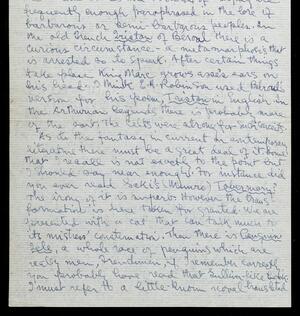 frequently enough paraphrased in the lore of
barbarous or semi-barbarous peoples. In
the old French Tristan of Béroul there is a
curious circumstance - a metamorphosis that
is arrested so to speak. After certain things
take place King Marc grows asse's ears on
his head. I think E. A. Robinson used Béroul's
version for his poem, Tristan in English. In
the Arthurian legends there is probably more
of the sort. The Celts were strong for such events.
As to the fantasy in current or contemporary
situation there must be a great deal of it. One
that I recall is not exactly to the point but
I should say near enough. For instance did
you ever read Saki's (Munro) Tobermory?
The irony of it is superb. However the trans-
formation is here taken for granted. We are
presented with a cat that can talk much to
its mistress' consternation. Then there is Penguin
Isle, a whole race of penguins which are
really men, Frenchmen, if I remember correctly
you probably have read that Sullivan-like
I must refer to a little-known novel translated